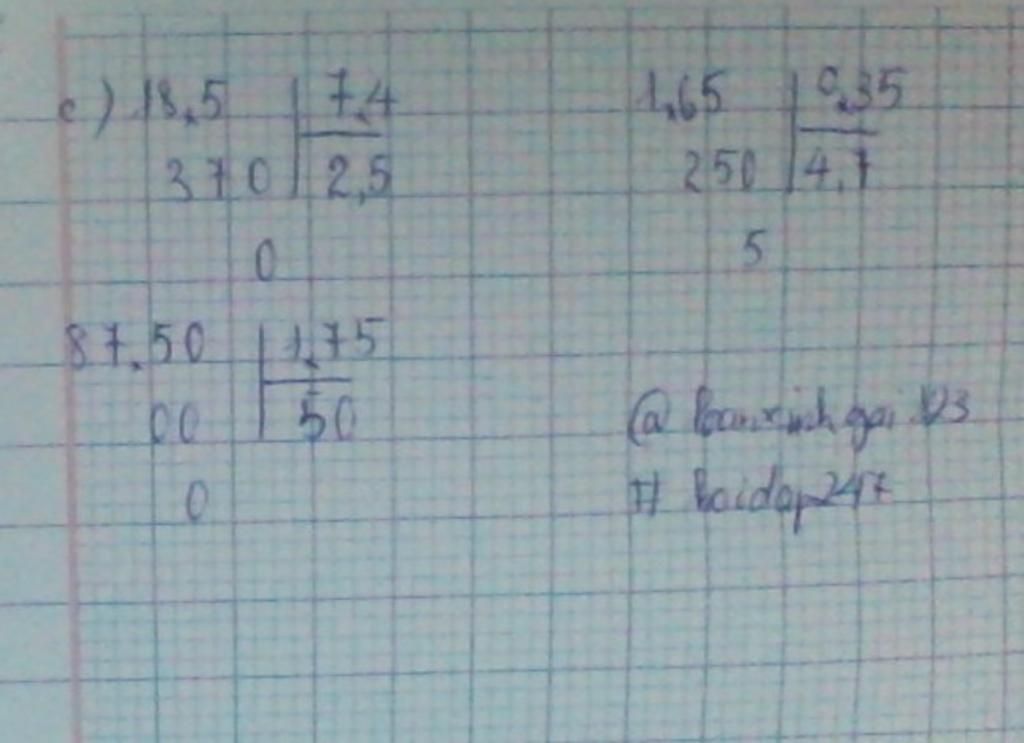 c) 18,5 7,4
370 2,5
0
1,65 0,35
250 4,7
5
87,50 1,75
00 50
0
@
# hoidap247